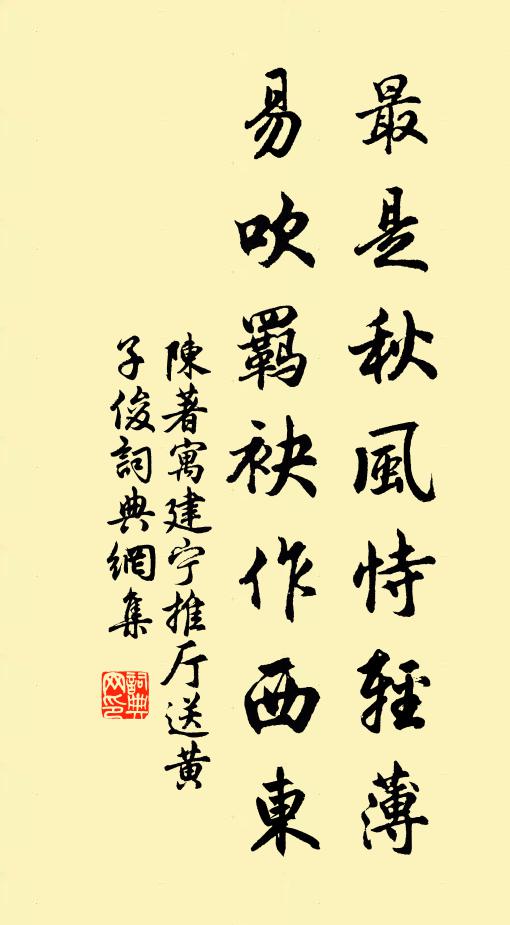 最是秋風恃輕薄
易吹羈袂作西東
陳著寓建宁推厅送黄
子俊詞典網集
詞典网印